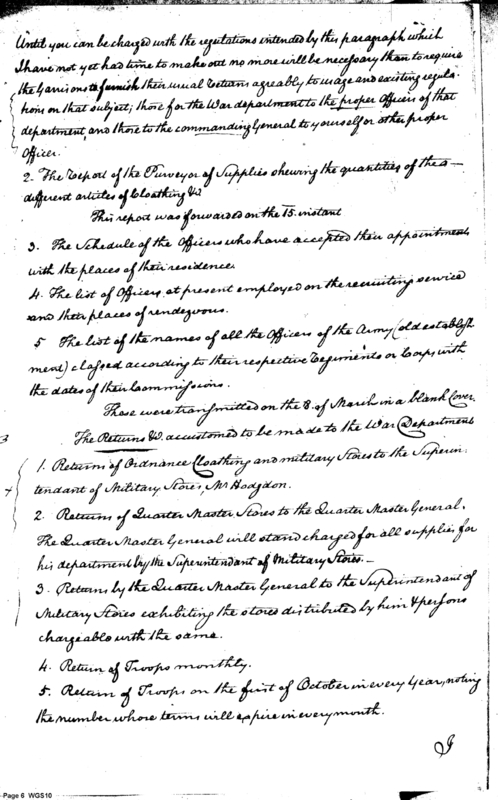 Until you can be charged with the regulations intended by this paragraph which
I have not yet had time to make out no more will be necessary than to require
the Garrisons to furnish their usual Returns agreably to usage and existing regula-
tions on that subject; those for the War department to the proper Officers of that
department, and those to the commanding General to yourself or other proper
Officer.
2. The Report of the Purveyor of Supplies shewing the quantities of the
different articles of Cloathing &c
This report was forwarded on the 15. instant
3. The Schedule of the Officers who have accepted their appointments
with the places of their residence.
4. The list of Officers at present employed on the recruiting service
and their places of rendezvous.
5 The list of the names of all the Officers of the Army (old establish
ment) classed according to their respective Regiments or Corps with
the dates of their Commissions.
These were transmitted on the 8. of March in a blank Cover.
3
The Returns &c. accustomed to be made to the War Department
1. Returns of Ordnance Cloathing and military Stores to the Superin-
+
tendant of Military Stores, Mr Hodgdon.
2. Returns of Quarter Master Stores to the Quarter Master General.
The Quarter Master General will stand charged for all supplies for
his department by the Superintendant of Military Stores.—
3. Returns by the Quarter Master General to the Superintendant of
Military Stores exhibiting the stores distributed by him & persons
chargeable with the same.
4. Return of Troops monthly.
5. Return of Troops on the first of October in every year, noting
the number whose terms will expire in every month.
Page 6 WGS10